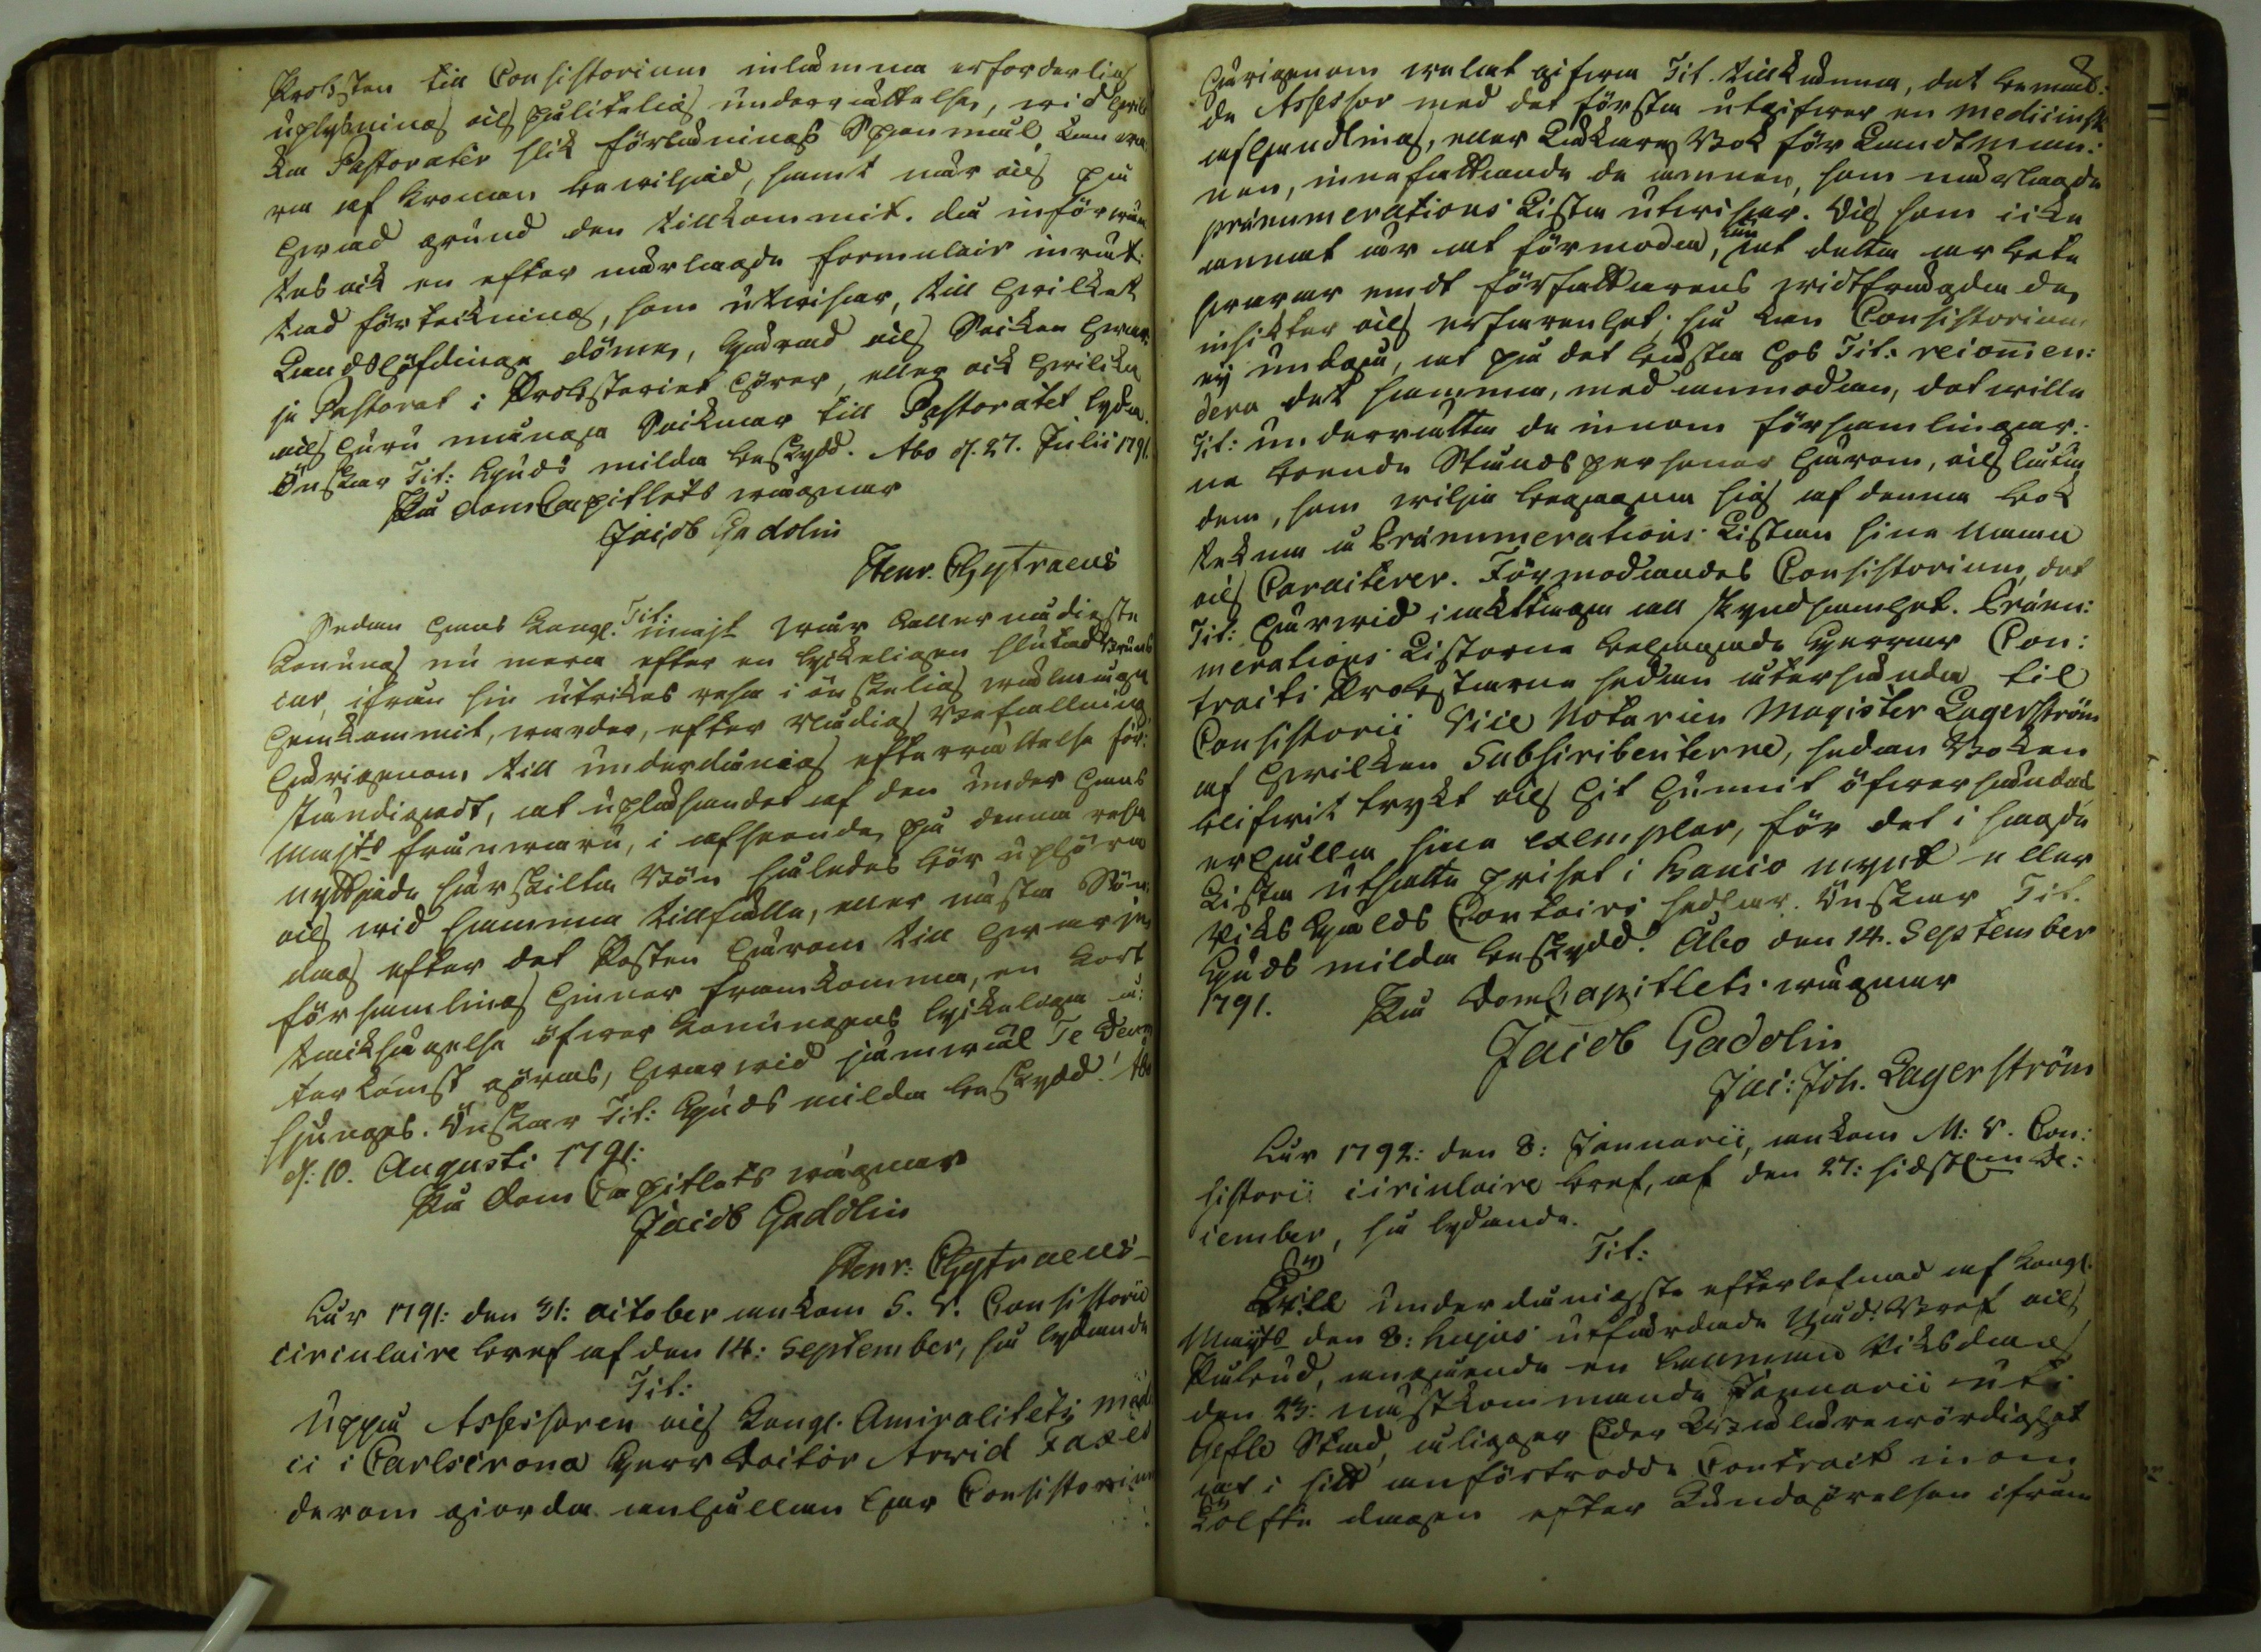 Probsten till Consistorium inlämna erforderlig
uplysning och pålitelig underrättelse, wid hwil
ka Pastorater slik förläning Spanmål kan wa
ra af Kronan bewiljad, samt når och på
hwad grund den tillkommit. Då införwän
tes ock en efter närlagde formulair inrät:
tad förtekning, som utwisar, till hwilket
Landshöfdinge döme, härad och Socken hwar
je Pastorat i Probsteriet hörer, eller ock hwilka
och huru månge Socknar till Pastoratet lyda.
Önskar Tit: Guds milda beskydd. Åbo d. 27. Julii 1791.
På DomCapitlets wägnar
Jacob Gadolin
Henr. Chytraeus
Tit:
Sedan Hans Kongl. Majt wår allernådigste
Konung nu mera efter en lyckeligen slutad Bruns
cur, ifrån sin utrikes resa i önskelig wälmåga
hemkommit, warder, efter Nådig Befallning
härigenom till underdånig efterrättelse för:
ständigadt, at upläsandet af den under Hans
Majts frånwaru, i afseende på denna resa
nyttjade särskilta Bön således bör uphöra
och wid samma tillfälle, eller nästa Sön
dag efter det Posten härom till hwarje
församling hinner framkomma, en kort
tacksägelse öfwer Konungens lyckeliga å:
terkomst göras, hwarwid jämwäl Te Deum
sjunges. Önskar Tit: Guds milda beskydd! Åbo
d. 10. Augusti 1791:
På Dom Capitlets wägnar
Jacob Gadolin
Henr: Chytraeus
Åur 1791: den 31: october ankom S. V. Consistorii
circulaire bref af den 14: September, så lydande
Tit:
Uppå Assessoren och Kongl. Amiralitets Medi
ci i Carlscrona Herr Doctor Arvid Faxes
derom giorda anhållan har Consistorium
härigenom welat gifwa Tit. tillkänna, det bemäl:
de Assessor med det första utgifwer en medicinsk
afhandling, eller Läkare Bok för Landtman:
nen, innefattande de ämnen, som närlagde
prænumerations Listan utwisar. Och som icke
annat är at förmoda, än
at detta arbete
swarar emot författarens widtfrägdade
insikter och erfarenhet; så kan Consistorium
ej undgå, at på det bästa hos Tit: recommen:
dera det samma, med anmodan, det wille
Tit: underrätta de inom församlingar:
na boende Stånds personer härom, och låta
dem, som wilja begagna sig af denna bok
tekna å Prænumerations Listan sina namn
och Caracterer. Förmodandes Consistorium, det
Tit: härwid iakttager all skyndsamhet. Prænu:
merations Listorne behagade Herrar Con:
tracts Probstarne sedan återsända til
Consistorii Vice Notarien Magister Lagerström
af hwilken Subscribenterne, sedan Boken
blifwit tryckt och hit hunnit öfwersändas
erhålla sina exemplar, för det i sagde
Lista utsatta priset i Banco mynt eller
Riks Gälds Contoirs sedlar. Önskar Tit.
Guds milda beskydd. Åbo den 14. September
1791.
På DomCapitlets wägnar
Jacob Gadolin
Jac: Joh. Lagerström
Åur 1792: den 8: Januarii, ankom M: V. Con:
sistorii circulaire bref, af den 27: sidstl. De:
cember, så lydande.
Tit:
Till underdånigste efterlefnad af Kongl.
Maijts den 8: hujus utfärdade Nåd: Bref och
Påbud, angående en allmän Riksdag
den 23: nästkommande Januarii uti
Gefle Stad, åligger Eder Wällärewördighet
at i sitt anförtrodde Contract inom
tolfte dagen efter kundgörelsen ifrån